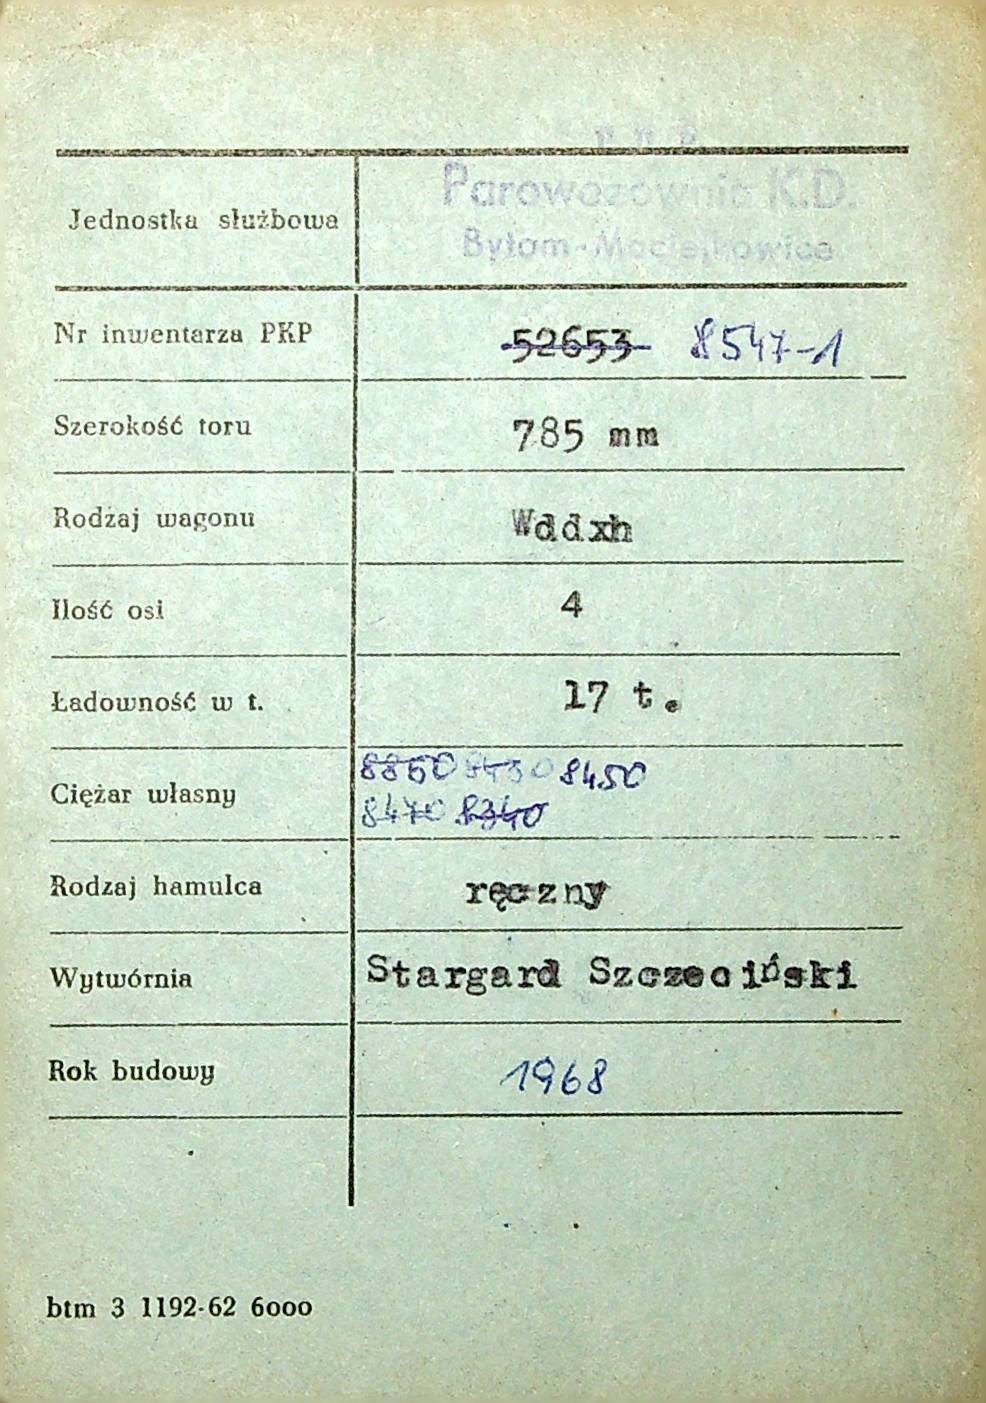 P K P
Parowozownia K.D.
Bytom-Maciejkowice
Jednostka służbowa
Nr inwentarza PKP 52653 8547-1
Szerokość toru 785 mm
Rodzaj wagonu Wddxh
Ilość osi 4
Ładowność w t. 17 t.
8850 8450
Ciężar własny
8470 8340
Rodzaj hamulca ręczny
Wytwórnia Stargard Szczeciński
Rok budowy 1968
btm 3 1192-62 6000